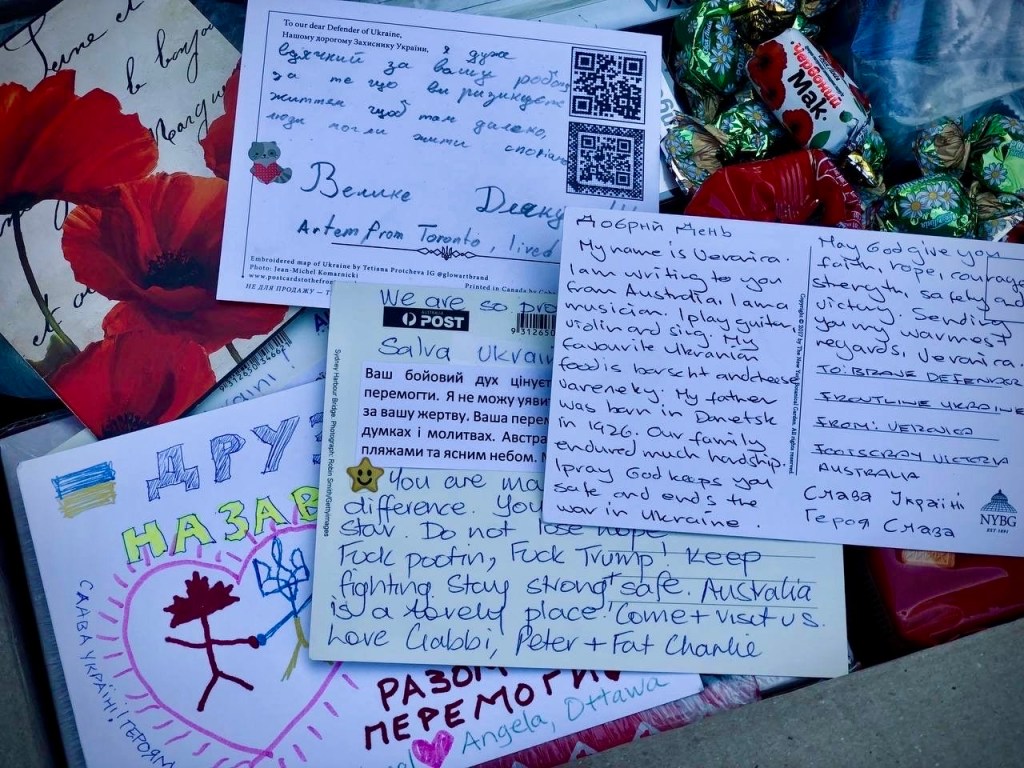 To our dear Defender of Ukraine,
Нашому дорогому Захиснику України,
я дуже
вдячний за вашу роботу
за те що ви ризикуєте
життям щоб там далеко,
люди могли жити спокійно
Велике Дякую
Artem from Toronto, lived
Embroidered map of Ukraine by Tetiana Protcheva IG @glowartbrand
Photo: Jean-Michel Komarnicki
www.postcardstothefron
Printed in Canada by
НЕ ДЛЯ ПРОДАЖУ
Червоний
Мак
Добрий День
My name is Veronica.
I am writing to you
from Australia. I am a
musician. I play guitar,
violin and sing. My
favourite Ukranian
food is borscht and cheese
vareneky. My father
was born in Donetsk
in 1926. Our family
endured much hardship.
I pray God keeps you
safe and ends the
war in Ukraine.
May God give you
faith, hope, courage
strength, safety and
victory. Sending
you my warmest
regards, Veronica.
TO: BRAVE DEFENDER
FRONTLINE UKRAINE
FROM: VERONICA
FOOTSCRAY VICTORIA
AUSTRALIA
Слава Україні
Героя Слава
NYBG
EST 1891
We are so pro
AUSTRALIA
POST
Salva Ukrain
Ваш бойовий дух цінує
перемогти. Я не можу уяви
за вашу жертву. Ваша пере
думках і молитвах. Австра
пляжами та ясним небом.
Sydney Harbour Bridge. Photograph: Robin Smith/Gettyimages
You are ma
difference. You
stay. Do not lose hope
Fuck pootin, Fuck Trump! Keep
fighting. Stay strong + safe. Australia
is a lovely place! Come + visit us.
Love Gabbi, Peter + Fat Charlie
ДРУЗ
НАЗАВ
СЛАВА УКРАЇНІ! ГЕРОЯМ
РАЗОМ
ПЕРЕМОГИ
Angela, Ottawa